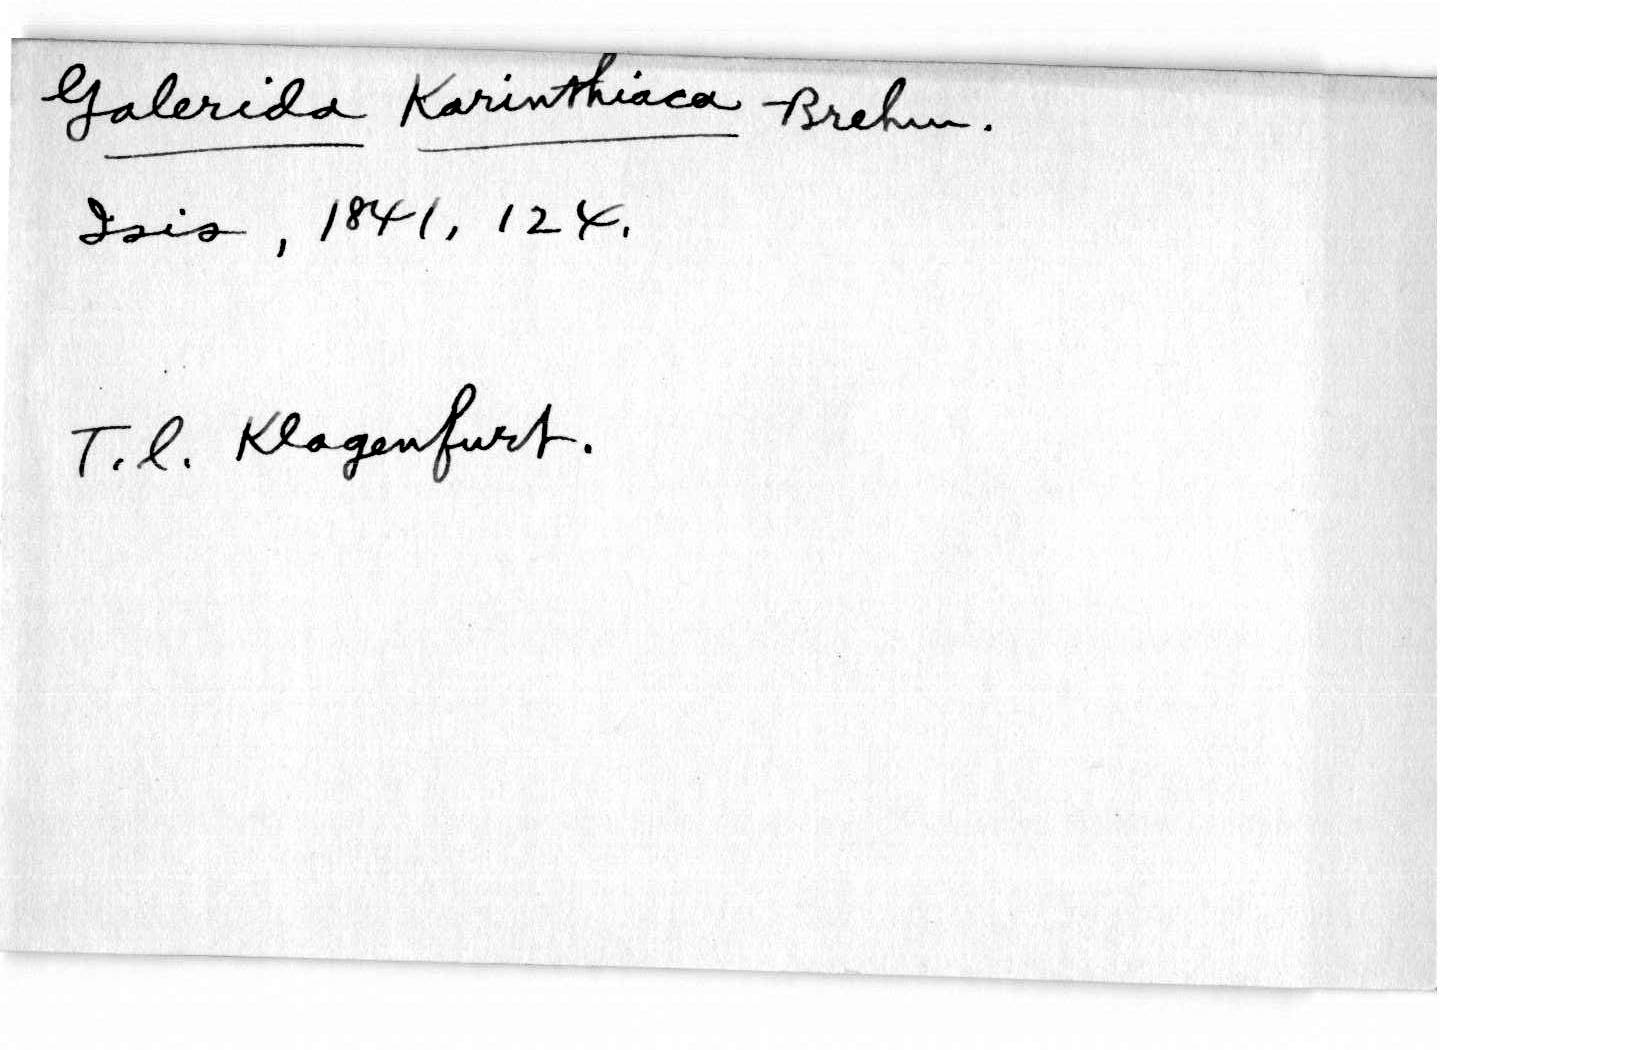 Galerida Karinthiaca Brehm.
Isis, 1841, 124.
T.l. Klagenfurt.